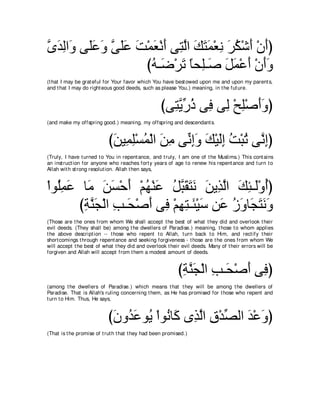 أَنْ أَشْكُرَ نِعْمَتَكَ الَّتِى أَنْعَمْتَ عَلَىَّ وَعَلَى وَلِدَىَّ
وَأَنْ أَعْمَلَ صَـلِحاً تَرْضَـهُ)
(that I may be grateful for Your favor which You have bestowed upon me and upon my parents,
and that I may do righteous good deeds, such as please You.) meaning, in the future.
(وَأَصْلِحْ لِى فِى ذُرِّيَّتِى)
(and make my offspring good.) meaning, my offspring and descendants.
(إِنَّى تُبْتُ إِلَيْكَ وَإِنِّى مِنَ الْمُسْلِمِينَ)
(Truly, I have turned to You in repentance, and truly, I am one of the Muslims.) This contains
an instruction for anyone who reaches forty years of age to renew his repentance and turn to
Allah with strong resolution. Allah then says,
(أُوْلَـئِكَ الَّذِينَ نَتَقَبَّلُ عَنْهُمْ أَحْسَنَ مَا عَمِلُواْ
وَنَتَجَاوَزُ عَن سَيْئَـتِهِمْ فِى أَصْحَـبِ الْجَنَّةِ)
(Those are the ones from whom We shall accept the best of what they did and overlook their
evil deeds. (They shall be) among the dwellers of Paradise.) meaning, those to whom applies
the above description -- those who repent to Allah, turn back to Him, and rectify their
shortcomings through repentance and seeking forgiveness - those are the ones from whom We
will accept the best of what they did and overlook their evil deeds. Many of their errors will be
forgiven and Allah will accept from them a modest amount of deeds.
(فِى أَصْحَـبِ الْجَنَّةِ)
(among the dwellers of Paradise.) which means that they will be among the dwellers of
Paradise. That is Allah's ruling concerning them, as He has promised for those who repent and
turn to Him. Thus, He says,
(وَعْدَ الصِّدْقِ الَّذِى كَانُواْ يُوعَدُونَ)
(That is the promise of truth that they had been promised.)